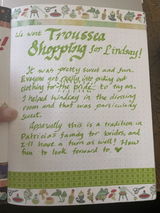 We went Trousseau
Shopping for Lindsay!
It was pretty sweet and fun.
Everyone got really into picking out
clothing for the bride to try on.
I helped Lindsay in the dressing
room and that was particularly
sweet.
Apparently this is a tradition in
Patricia's family for brides, and
I'll have a turn as well! How
fun to look forward to